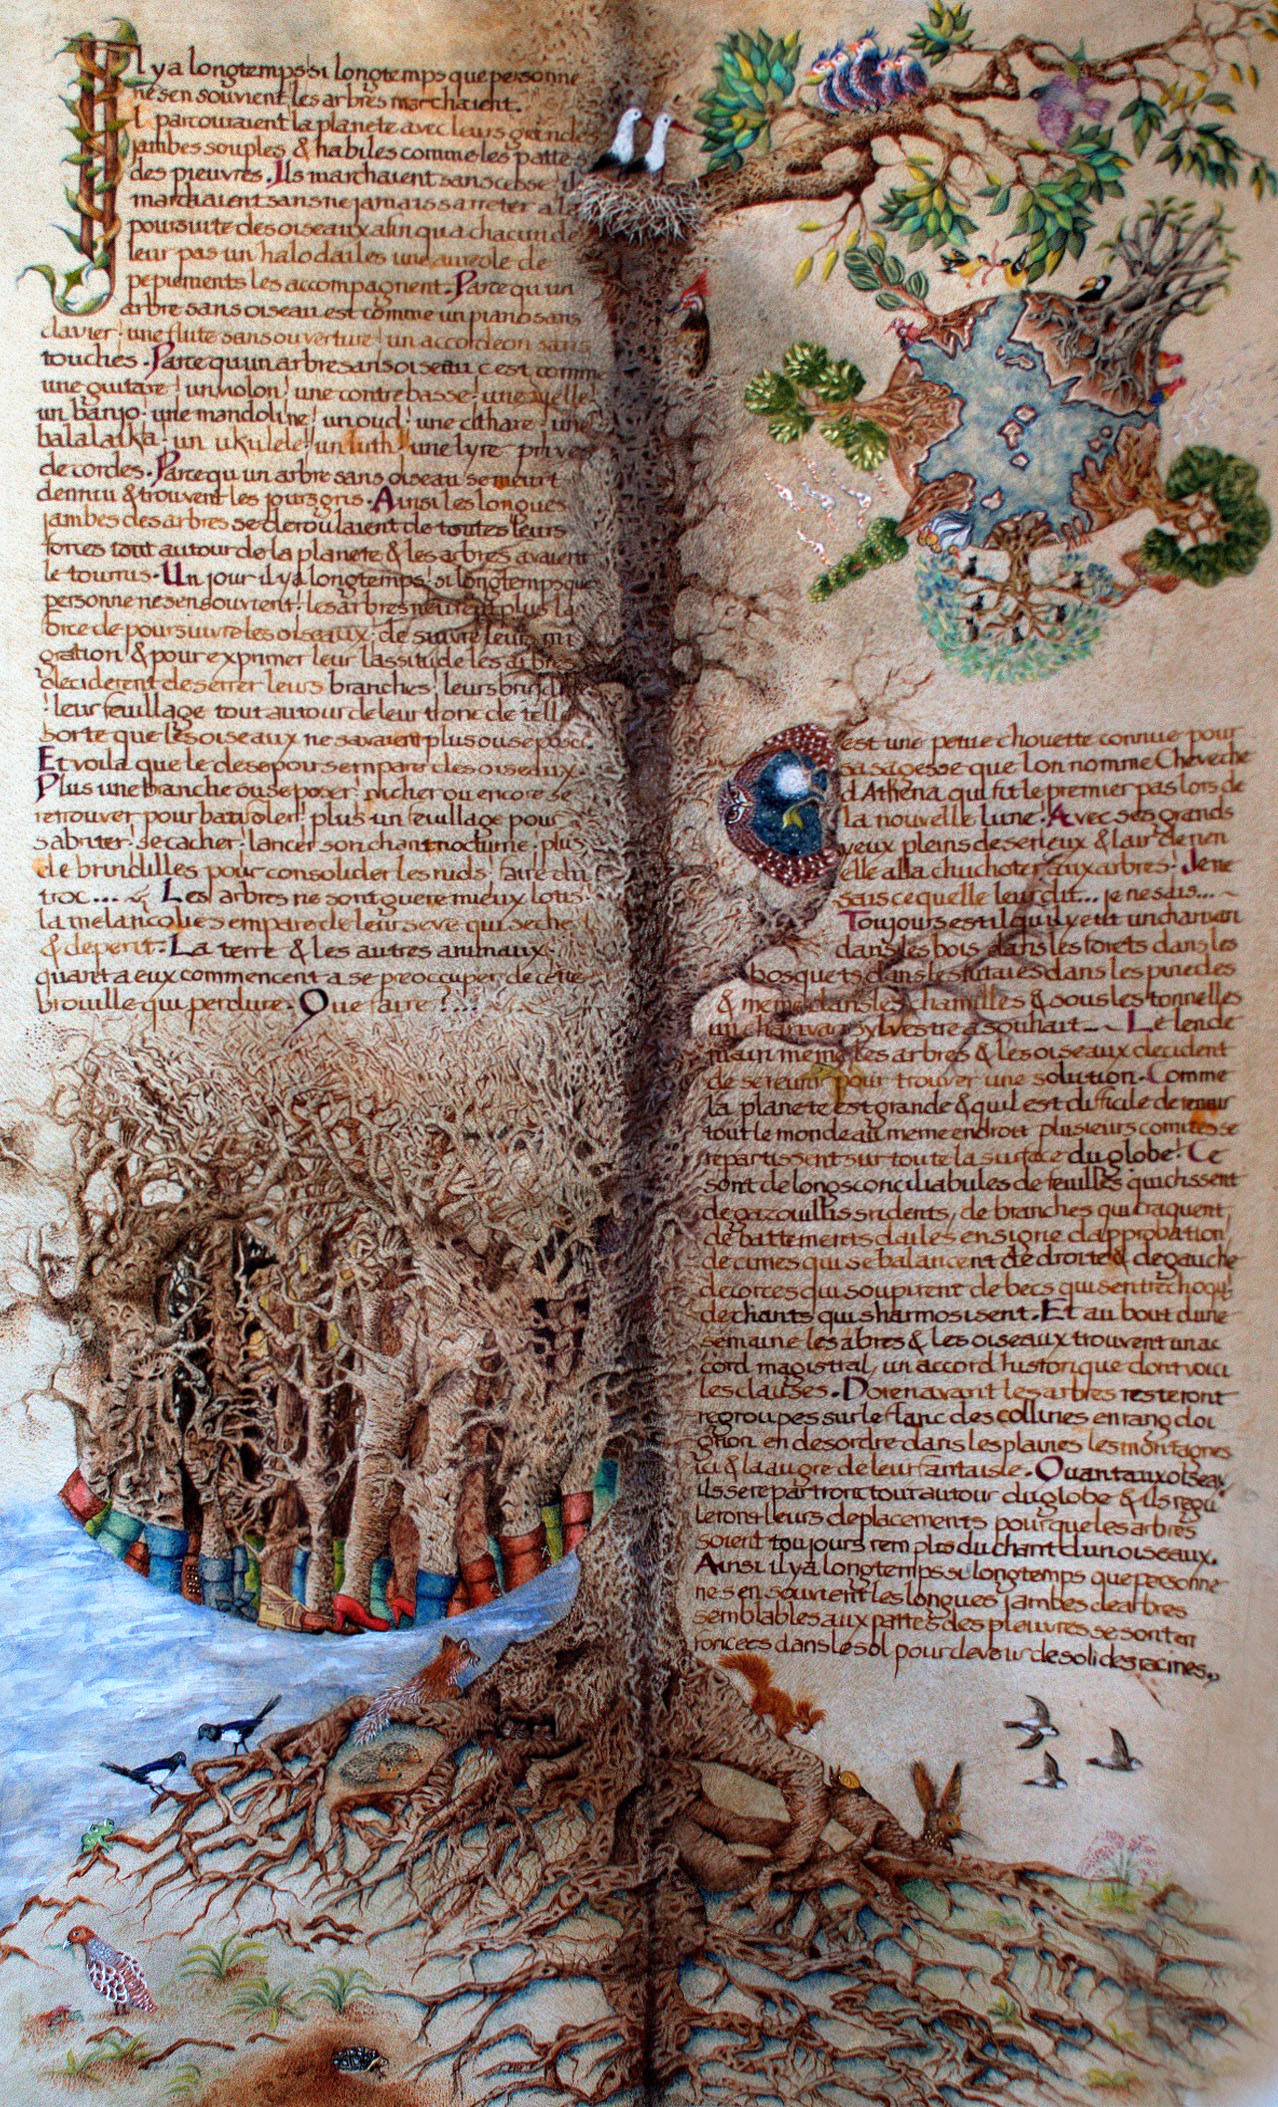 Il y a longtemps si longtemps que personne
ne s en souvient les arbres marchaient.
Il parcouraient la planete avec leurs grandes
jambes souples & habiles comme les pattes
des pieuvres. Ils marchaient sans cesse ils
marchaient sans ne jamais s arreter a la
poursuite des oiseaux afin qu a chacun de
leur pas un halo d ailes une aureole de
pepiements les accompagnent. Parce qu un
arbre sans oiseau est comme un piano sans
clavier! une flute sans ouverture! un accordeon sans
touches. Parce qu un arbre sans oiseau c est comme
une guitare! un violon! une contrebasse! une vielle!
un banjo. une mandoline! un oud! une cithare. une
balalaïka. un ukulele! un luth! une lyre prives
de cordes. Parce qu un arbre sans oiseau se meurt
d ennui & trouvent les jours gris. Ainsi les longues
jambes des arbres se deroulaient de toutes leurs
forces tout autour de la planete & les arbres avaient
le tournis. Un jour il y a longtemps! si longtemps que
personne ne s en souvient! les arbres n eurent plus la
force de poursuivre les oiseaux. de suivre leur mi
gration & pour exprimer leur lassitude les arbres
deciderent de serrer leurs branches! leurs brindilles
! leur feuillage tout autour de leur tronc de telle
sorte que les oiseaux ne savaient plus ou se poser.
Et voila que le desespoir s empare des oiseaux.
Plus une branche ou se poser! nicher ou encore se
retrouver pour batifoler! plus un feuillage pour
s abriter! se cacher! lancer son chant nocturne. plus
de brindilles pour consolider les nids! faire du
troc... Les arbres ne sont guere mieux lotis.
la melancolie s empare de leur seve qui seche
& deperit. La terre & les autres animaux.
quant a eux commencent a se preoccuper de cette
brouille qui perdure. Que faire ?....
est une petite chouette connue pour
sa sagesse que l on nomme Cheveche
d Athena qui fit le premier pas lors de
la nouvelle lune. Avec ses grands
yeux pleins de serieux & l air de rien
elle alla chuchoter aux arbres! Je ne
sais ce quelle leur dit... je ne sais...
Toujours est il qu il y eut un charivari
dans les bois dans les forets dans les
bosquets dans les futaies dans les pinedes
& meme dans les charmilles & sous les tonnelles
un charivari sylvestre a souhait... Le lende
main meme les arbres & les oiseaux decident
de se reunir pour trouver une solution. Comme
la planete est grande & qu il est difficile de reunir
tout le monde au meme endroit plusieurs comites se
repartissent sur toute la surface du globe! Ce
sont de longs conciliabules de feuilles qui crissent
de gazouillis stridents, de branches qui craquent,
de battements d ailes en signe d approbation,
de cimes qui se balancent de droite & de gauche
d ecorces qui soupirent de becs qui s entrechoqu
de chants qui s harmosisent. Et au bout d une
semaine les abres & les oiseaux trouvent un ac
cord magistral, un accord historique dont voici
les clauses. Dorenavant les arbres resteront
regroupes sur le flanc des collines en rang d oi
gnon en desordre dans les plaines les montagnes
ici & la au gre de leur fantaisie. Quant aux oiseaux
ils se repartiront tout autour du globe & ils regu
leront leurs deplacements pour que les arbres
soient toujours remplis du chant d un oiseaux.
Ainsi il y a longtemps si longtemps que personne
ne s en souvient les longues jambes des arbres
semblables aux pattes des pieuvres se sont en
foncees dans le sol pour devenir de solides racines.,